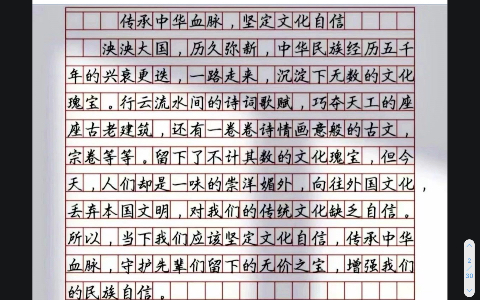 传承中华血脉，坚定文化自信
泱泱大国，历久弥新，中华民族经历五千
年的兴衰更迭，一路走来，沉淀下无数的文化
瑰宝。行云流水间的诗词歌赋，巧夺天工的座
座古老建筑，还有一卷卷诗情画意般的古文，
宗卷等等。留下了不计其数的文化瑰宝，但今
天，人们却是一味的崇洋媚外，向往外国文化，
丢弃本国文明，对我们的传统文化缺乏自信。
所以，当下我们应该坚定文化自信，传承中华
血脉，守护先辈们留下的无价之宝，增强我们
的民族自信。
2
30